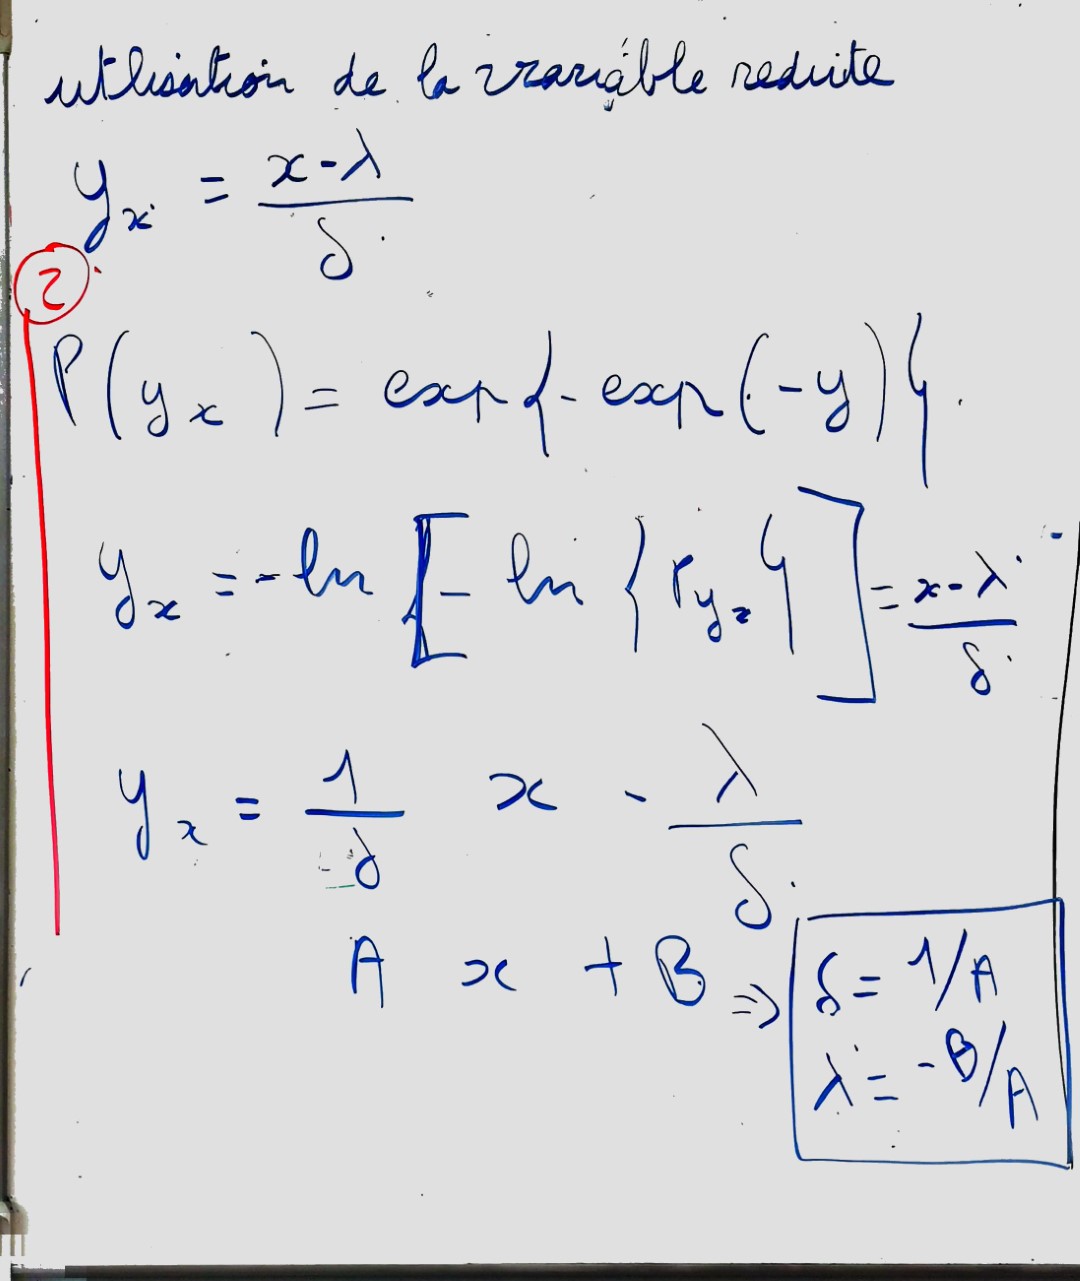 utlisation de la variable reduite
y_x = (x-λ)/δ
②
P(y_x) = exp{-exp(-y)}.
y_x = -ln[-ln{P_{y_x}}] = (x-λ)/δ
y_x = 1/δ x - λ/δ
A x + B => δ = 1/A
λ = -B/A